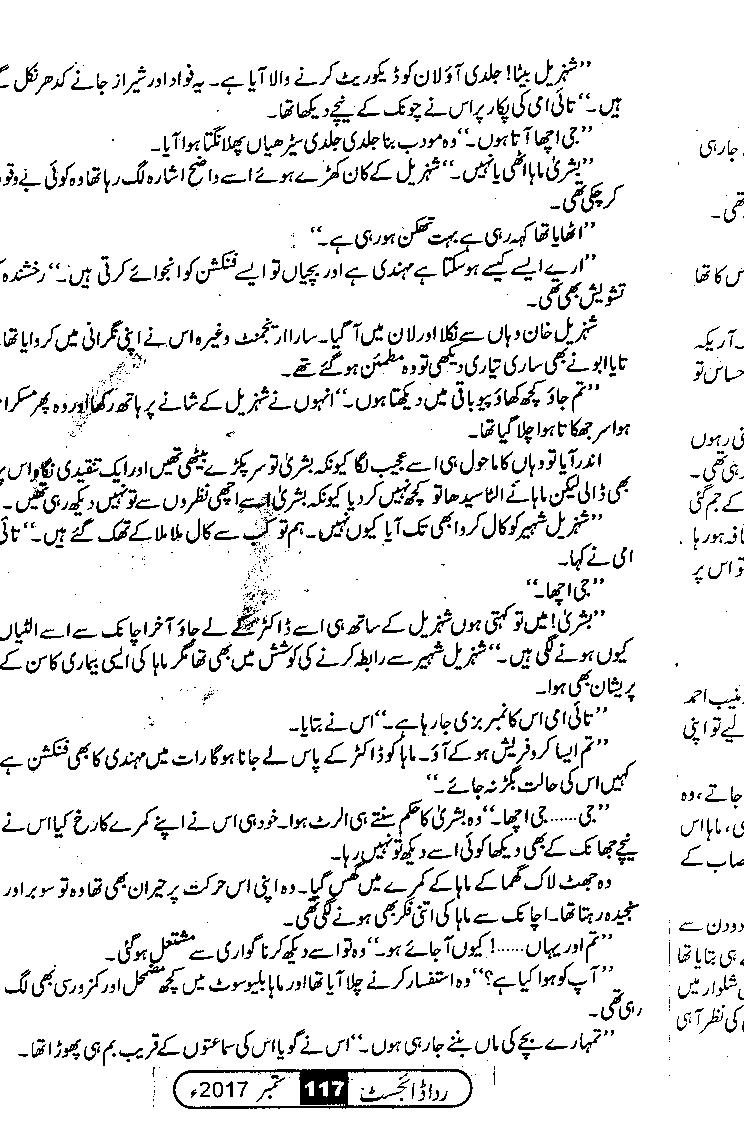 "شہزیل بیٹا! جلدی آؤ لان کو ڈیکوریٹ کرنے والا آیا ہے۔ یہ فواد اور شیراز جانے کدھر نکل گے
ہیں۔" تائی امی کی پکار پر اس نے چونک کے نیچے دیکھا تھا۔
"جی اچھا آتا ہوں۔" وہ مودب بنا جلدی جلدی سیڑھیاں پھلانگتا ہوا آیا۔
"بشریٰ ماہا اٹھی یا نہیں۔" شہزیل کے کان کھڑے ہوئے اسے واضح اشارہ لگ رہا تھا وہ کوئی بے وقو
کر چکی تھی۔
"اٹھایا تھا کہہ رہی ہے بہت تھکن ہو رہی ہے۔"
"ارے ایسے کیسے ہو سکتا ہے مہندی ہے اور بچیاں تو ایسے فنکشن کو انجوائے کرتی ہیں۔" رخشندہ ک
تشویش بھی تھی۔
شہزیل خان وہاں سے نکلا اور لان میں آ گیا۔ سارا ارینجمنٹ وغیرہ اس نے اپنی نگرانی میں کروایا تھا
تایا ابو نے بھی ساری تیاری دیکھی تو وہ مطمئن ہو گئے تھے۔
"تم جاؤ کچھ کھاؤ پیو باقی میں دیکھتا ہوں۔" انہوں نے شہزیل کے شانے پر ہاتھ رکھا اور وہ پھر مسکرا
ہوا سر جھکاتا ہوا چلا گیا تھا۔
اندر آیا تو وہاں کا ماحول ہی اسے عجیب لگا کیونکہ بشریٰ تو سر پکڑے بیٹھی تھیں اور ایک تنقیدی نگاہ اس پر
بھی ڈالی لیکن ماہا نے الٹا سیدھا تو کچھ نہیں کر دیا کیونکہ بشریٰ اسے اچھی نظروں سے تو نہیں دیکھ رہی تھیں۔
"شہزیل شہیر کو کال کرو ابھی تک آیا کیوں نہیں۔ ہم تو کب سے کال ملا ملا کے تھک گئے ہیں۔" تائی
امی نے کہا۔
"جی اچھا۔"
"بشریٰ! میں تو کہتی ہوں شہزیل کے ساتھ ہی اسے ڈاکٹر کے لے جاؤ آخر اچانک سے اسے الٹیاں
کیوں ہونے لگی ہیں۔" شہزیل شہیر سے رابطہ کرنے کی کوشش میں بھی تھا مگر ماہا کی ایسی بیماری کا سن کے
پریشان بھی ہوا۔
"تائی امی اس کا نمبر بزی جا رہا ہے۔" اس نے بتایا۔
"تم ایسا کرو فریش ہو کے آؤ۔ ماہا کو ڈاکٹر کے پاس لے جانا ہوگا رات میں مہندی کا بھی فنکشن ہے
کہیں اس کی حالت بگڑ نہ جائے۔"
"جی......جی اچھا۔" وہ بشریٰ کا حکم سنتے ہی الرٹ ہوا۔ خود ہی اس نے اپنے کمرے کا رخ کیا اس نے
نیچے جھانک کے بھی دیکھا کوئی اسے دیکھ تو نہیں رہا۔
وہ جھٹ لاک گھما کے ماہا کے کمرے میں گھس گیا۔ وہ اپنی اس حرکت پر حیران بھی تھا وہ تو سوبر اور
سنجیدہ رہتا تھا۔ اچانک سے ماہا کی اتنی فکر بھی ہونے لگی تھی۔
"تم اور یہاں......! کیوں آ جاتے ہو۔" وہ تو اسے دیکھ کر ناگواری سے مشتعل ہو گئی۔
"آپ کو ہوا کیا ہے؟" وہ استفسار کرنے چلا آیا تھا اور ماہا بلیو سوٹ میں کچھ مضمحل اور کمزور سی بھی لگ
رہی تھی۔
"تمہارے بچے کی ماں بننے جا رہی ہوں۔" اس نے گویا اس کی سماعتوں کے قریب بم ہی پھوڑا تھا۔
ردا ڈائجسٹ 117 ستمبر 2017ء
جا رہی
تھی۔
س کا تھا
آر یکہ
حساس تو
ی رہوں
رہی تھی۔
کے جم گئی
افہ ہو رہا
تو اس پر
منیب احمد
لیے تو اپنی
جاتے، وہ
ی، ماہا اس
صاب کے
دو دن سے
ے ہی بتایا تھا
شلوار میں
کی نظر آ ہی